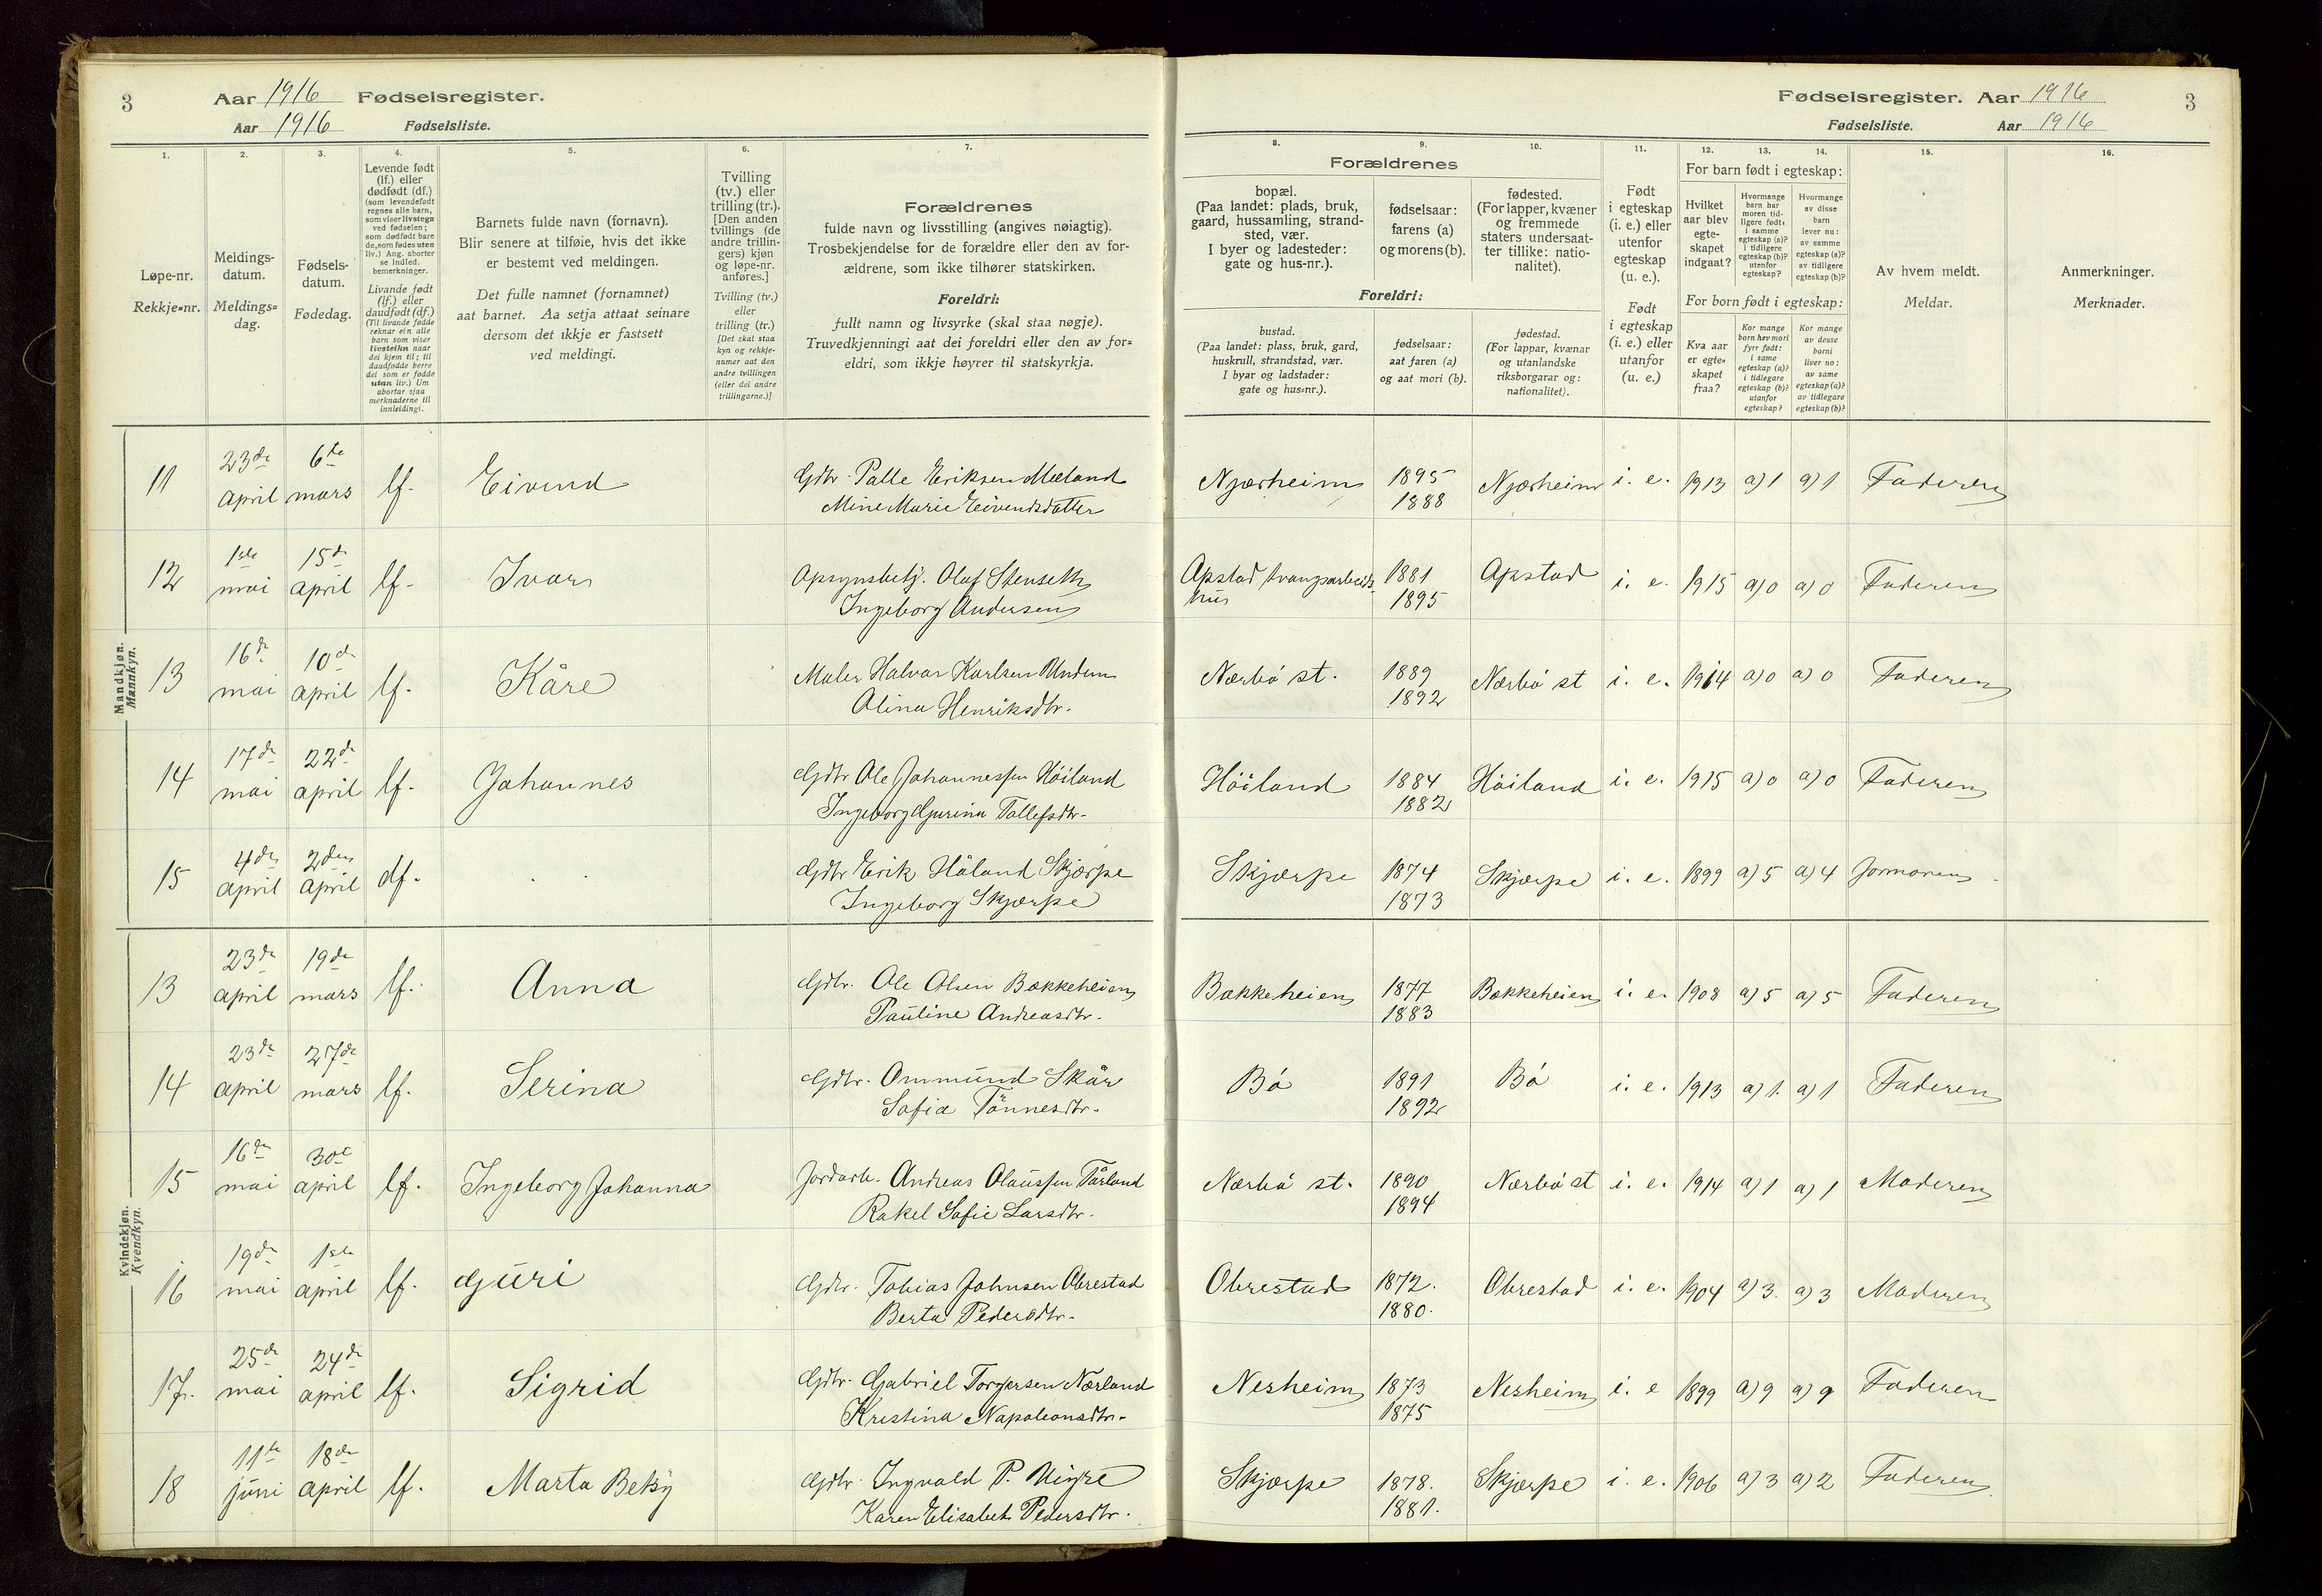 3
Aar 1916 Fødselsregister.
Aar 1916 Fødselsliste.
Fødselsregister. Aar 1916
3
Fødselsliste. Aar 1916
1.
Løpe-nr.
Rekkje-nr.
2.
Meldings-
datum.
Meldings-
dag.
3.
Fødsels-
datum.
Fødedag.
4.
Levende født
(lf.) eller
dødfødt (df.)
(som levendefødt
regnes alle barn,
som viser livstegn
ved fødselen;
som dødfødt bare
de, som fødes uten
liv.) Ang. aborter
se indled.
bemerkninger.
Livande født
(lf.) eller
daudfødt (df.)
(Til livande fødde
reknar ein alle
barn som viser
livsteikn naar
dei kjem til; til
daudfødde berre
dei som er fødde
utan liv.) Um
abortar sjaa
merknaderne til
innleidingi.
5.
Barnets fulde navn (fornavn).
Blir senere at tilføie, hvis det ikke
er bestemt ved meldingen.
Det fulle namnet (fornamnet)
aat barnet. Aa setja attaat seinare
dersom det ikkje er fastsett
ved meldingi.
6.
Tvilling
(tv.) eller
trilling (tr.).
[Den anden
tvillings (de
andre trillin-
gers) kjøn
og løpe-nr.
anføres.]
Tvilling (tv.)
eller
trilling (tr.)
[Det skal staa
kyn og rekkje-
numer aat den
andre tvillingen
(eller dei andre
trillingarne.)]
7.
Forældrenes
fulde navn og livsstilling (angives nøiagtig).
Trosbekjendelse for de forældre eller den av for-
ældrene, som ikke tilhører statskirken.
Foreldri:
fullt namn og livsyrke (skal staa nøgje).
Truvedkjenningi aat dei foreldri eller den av for-
eldri, som ikkje høyrer til statskyrkja.
8.
9.
10.
Forældrenes
bopæl.
(Paa landet: plads, bruk,
gaard, hussamling, strand-
sted, vær.
I byer og ladesteder:
gate og hus-nr.).
fødselsaar:
farens (a)
og morens (b).
fødested.
(For lapper, kvæner
og fremmede
staters undersaat-
ter tillike: natio-
nalitet).
Foreldri:
bustad.
(Paa landet: plass, bruk, gard,
huskrull, strandstad, vær.
I byar og ladstader:
gate og hus-nr.).
fødselsaar:
aat faren (a)
og aat mori (b).
fødestad.
(For lappar, kvænar
og utanlandske
riksborgarar og:
nationalitet).
11.
Født
i egteskap
(i. e.) eller
utenfor
egteskap
(u. e.).
Født
i egteskap
(i. e.) eller
utanfor
(u. e.)
12.
13.
14.
For barn født i egteskap:
Hvilket
aar blev
egte-
skapet
indgaat?
Hvormange
barn har
moren tid-
ligere født:
i samme
egteskap (a)?
i tidligere
egteskap (b)?
utenfor
egteskap?
Hvormange
av disse
barn
lever nu:
av samme
egteskap (a)?
av tidligere
egteskap (b)?
For born født i egteskap:
Kva aar
er egte-
skapet
fraa?
Kor mange
born hev mori
fyrr født:
i same
egteskap (a)?
i tidlegare
egteskap (b)?
utanfor
egteskap?
Kor mange
av desse
borni
liver no:
av same
egteskap (a)?
av tidlegare
egteskap (b)?
15.
Av hvem meldt.
Meldar.
16.
Anmerkninger.
Merknader.
Mandkjøn.
Mannkyn.
11 23de april 6te mars lf. Eivend Gdbr. Palle Eriksen Mæland Njærheim 1895 Njærheim i. e. 1913 a) 1 a) 1 Faderen
Mine Marie Eivendsdatter 1888
12 1ste mai 15de april lf. Ivar Opsynsbetj. Olaf Stenseth Opstad tvangsarbeids- 1881 Opstad i. e. 1915 a) 0 a) 0 Faderen
Ingeborg Andersen hus 1895
13 16de mai 10de april lf. Kåre Maler Halvar Karlsen Undem Nærbø st. 1889 Nærbø st i. e. 1914 a) 0 a) 0 Faderen
Alina Henriksdtr. 1892
14 17de mai 22de april lf. Johannes Gdbr Ole Johannessen Höiland Höiland 1884 Höiland i. e. 1915 a) 0 a) 0 Faderen
Ingeborg Gurina Tallefsdtr. 1882
15 4de april 2den april df. Gdbr Erik Håland Skjærpe Skjærpe 1874 Skjærpe i. e. 1899 a) 5 a) 4 Jormoren
Ingeborg Skjærpe 1873
Kvindekjøn.
Kvendkyn.
13 23de april 19de mars lf. Anna Gdbr. Ole Olsen Bækkeheien Bækkeheien 1877 Bækkeheien i. e. 1908 a) 5 a) 5 Faderen
Pauline Andreasdtr. 1883
14 23de april 27de mars lf. Serina Gdbr. Ommund Skår Bø 1891 Bø i. e. 1913 a) 1. a) 1 Faderen
Sofia Tönnesdtr. 1892
15 16de mai 30te april lf. Ingeborg Johanna Jordarb. Andreas Olaussen Tårland Nærbø st. 1890 Nærbø st i. e. 1914 a) 1 a) 1 Moderen
Rakel Sofie Larsdtr. 1894
16 19de mai 1ste april lf. Guri Gdbr. Tobias Johnsen Obrestad Obrestad 1872. Obrestad i. e. 1904 a) 3. a) 3 Moderen
Berta Pedersdtr. 1880.
17. 25de mai 24de april lf. Sigrid Gdbr. Gabriel Torgersen Nærland Nesheim 1873 Nesheim i. e 1899 a) 9 a) 9 Faderen
Kristina Napoleonsdtr. 1875
18 11te juni 18de april lf. Marta Betsy Gdbr. Ingvald P. Skjærpe 1878. Skjærpe i. e. 1906 a) 3 a) 2 Faderen
Karen Elisabet Pedersdtr. 1881.